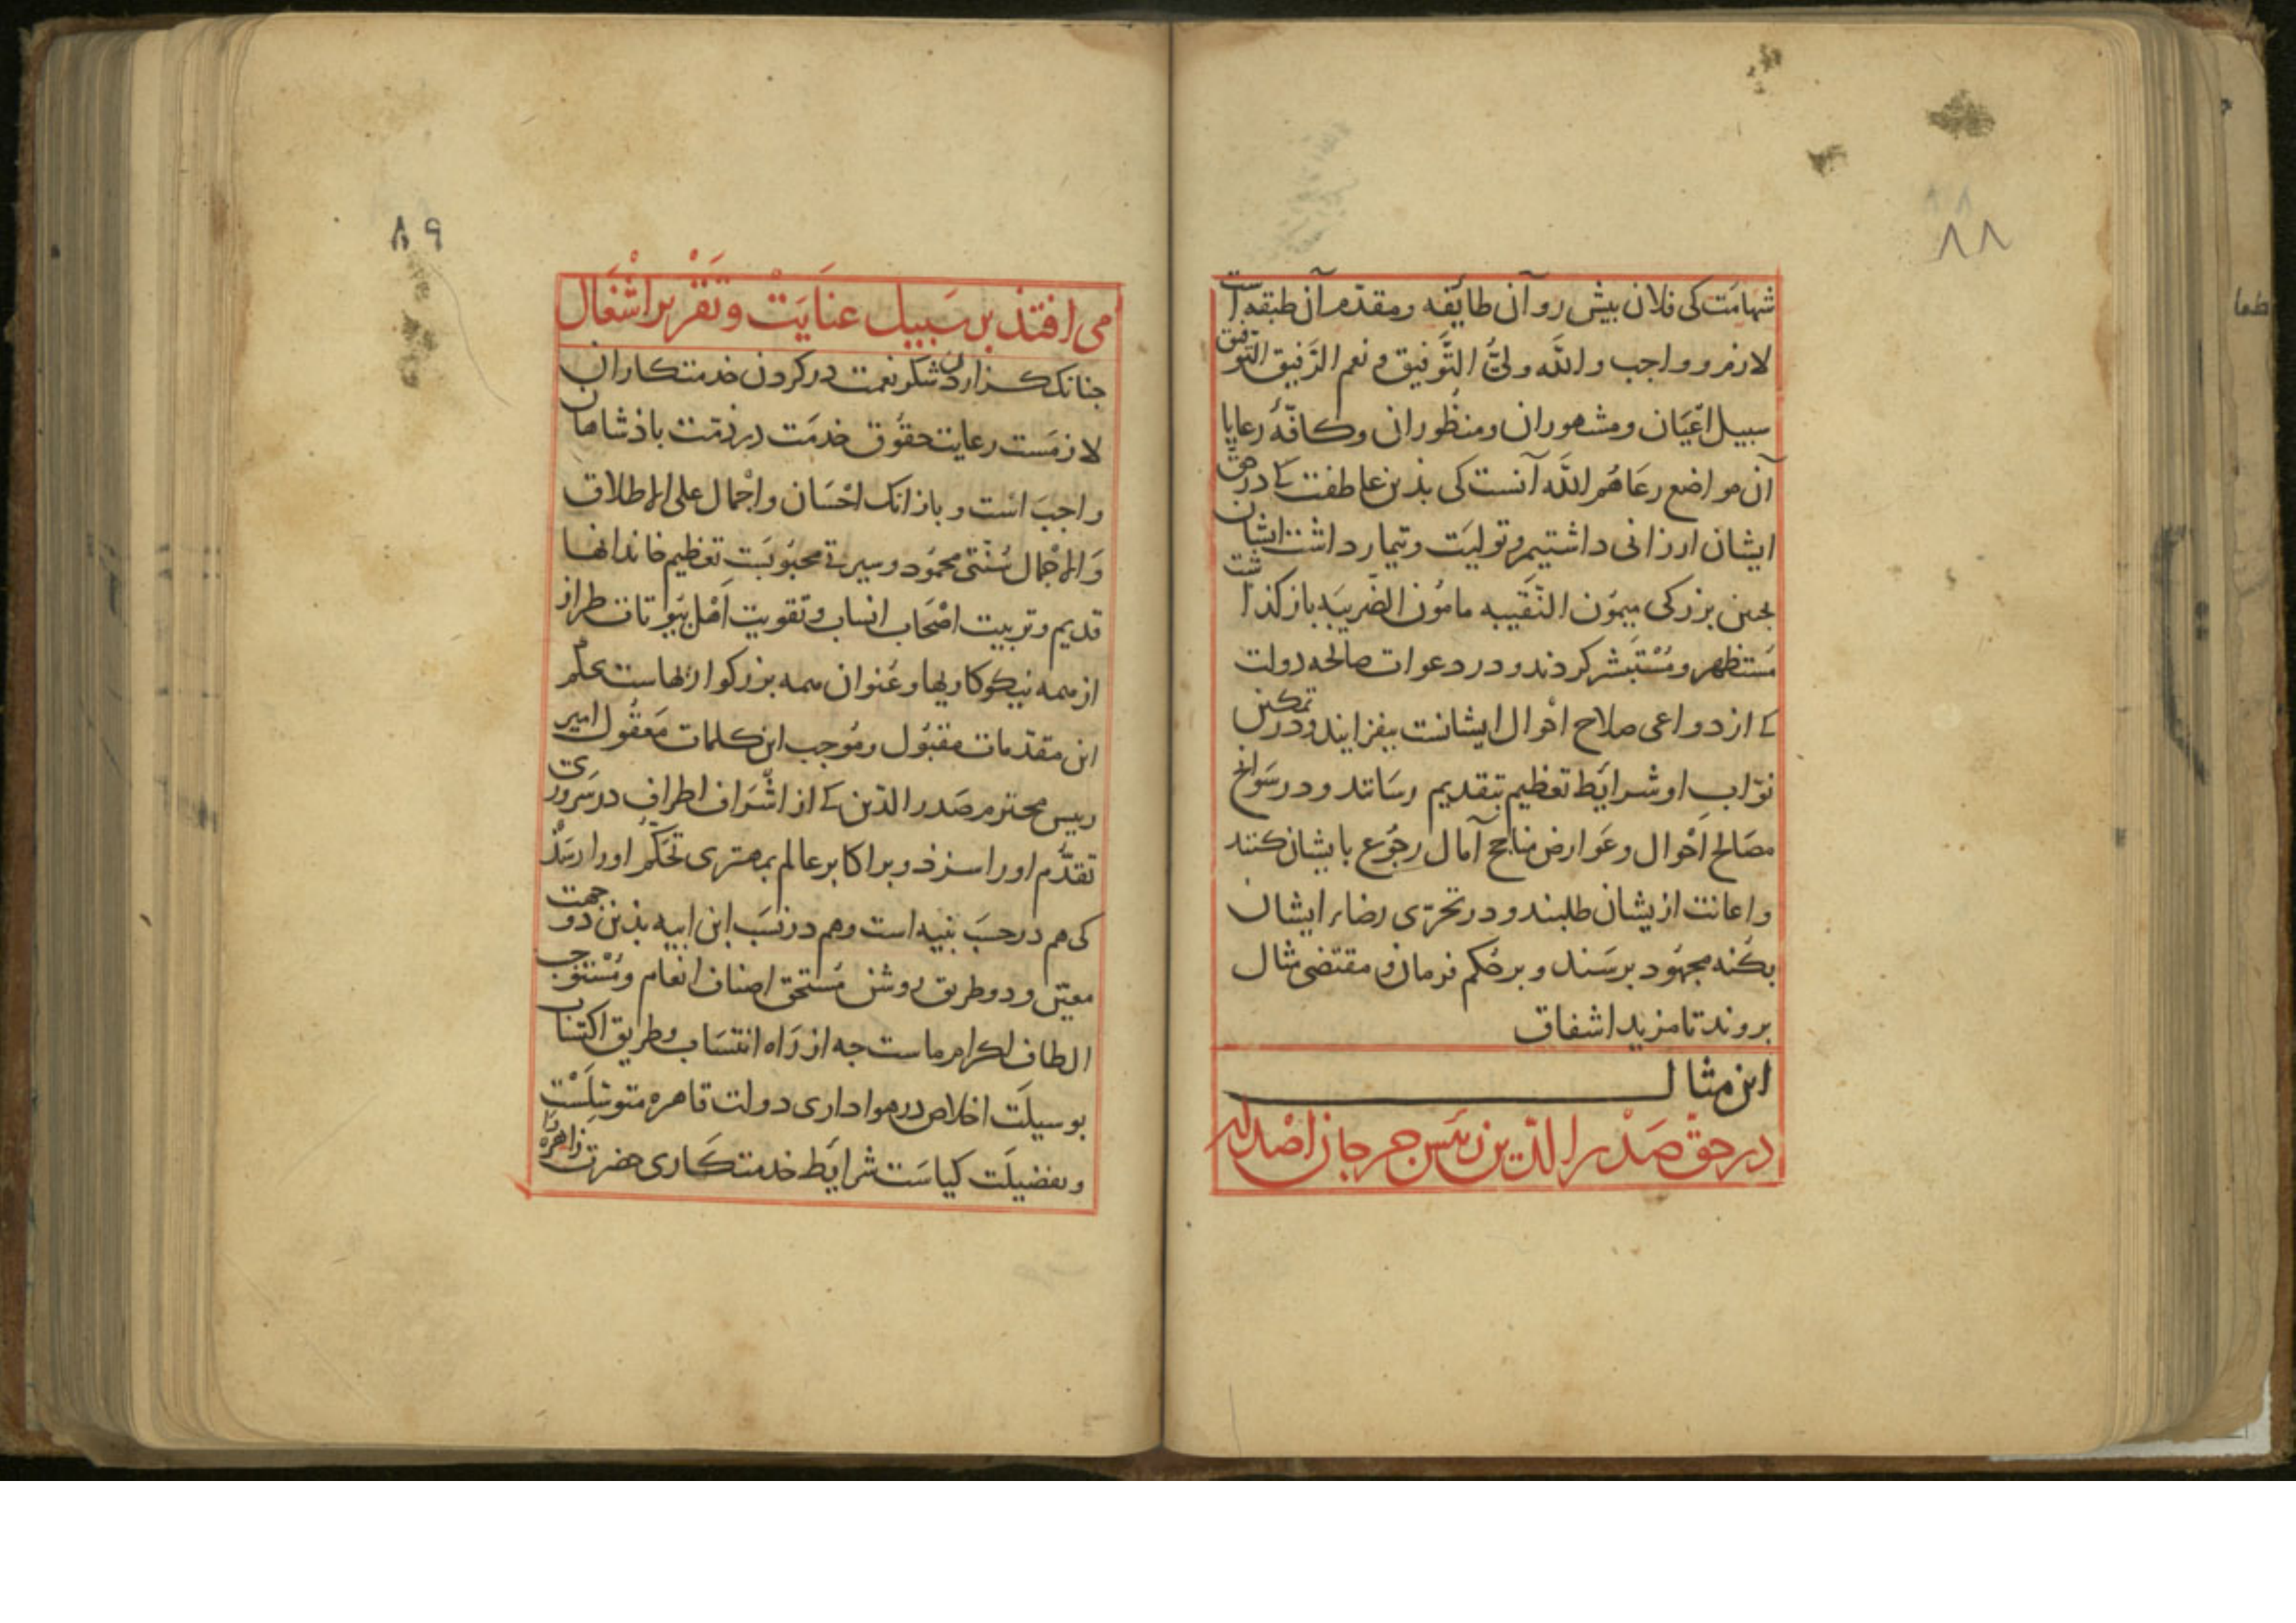 ۸۸
شهامت کی فلان پیش رو آن طایفه و مقدم آن طبقه است
لازم و واجب والله ولیُّ التَّوفیق و نعم الرَّفیق التوفیق
سبیل اعْیَان و مشهوران و منظوران و کافّهٔ رعایا
آن مواضع رعَاهُم اللَّه آنست کی بذین عاطفت کے در حق
ایشان ارزانی داشتیم و تولیَت و تیمار داشت ایشان
بجنین بزرکی میمُون النَّقیبه مامُون الضّریبَه باز کذاشت
مُستظهر و مُسْتَبشر کردند و در دعوات صالحه دولت
کے از دواعی صلاح احْوال ایشانست بیفزایند و در تمکین
نوّاب او شرایَط تعظیم بتقدیم رسَانند و در سَوانح
مصَالح اَحْوال و عَوارض مناجح آمال رجُوع بایشان کنند
و اعانت ازیشان طلبند و در تحرّی رضاء ایشان
بکُنه مجهُود برسَند و بر حُکم فرمان و مقتضی مثال
بروند تا مزید اشفاق
این مثال
در حقّ صَدْر الدّین رئیس جرجان اصْدار
۸۹
می افتذ بر سَبیل عنَایَتْ و تَقْریر اشْغَال
جنانک کزاردن شکر نعمت در کردن خدمتکاران
لازمَست رعایت حقوُق خدمَت در ذمّت باذشاهان
واجبَ است و باز انک احْسَان و اجْمال علی الاطلاق
وَالاجْمال سُنَّتی محمُود و سیرتے محبُوبَست تعظیم خاندانها
قدیم و تربیت اصْحَاب انساب و تقویت اَهْل بیوتات طراز
از همه نیکوکاریها و عُنوان همه بزرکواریهاست بحکم
این مقدّمات مقبُول و مُوجب این کلمات مَعقُول امیر
رییس محترم صَدر الدّین کے از اشْرَاف اطراف در سَروری
تقدُّم او را سزذ و بر اکابر عالم بمهتری تحَکُّم او را رسَذ
کی هم در حسَب نبیه است و هم در نسَب ابن ابیه بذین دو جهت
معیّن و دو طریق روشن مُستحق اصناف انعام و مُسْتوجب
الطاف اکرام ماست جه از رَاه انتسَاب و طریق اکتساب
بوسیلَت اخلاص در هواداری دولت قاهره متوسِّلَسْت
و بفضیلَت کیاسَت شرایَط خدمتکاری حضرت زاهره را